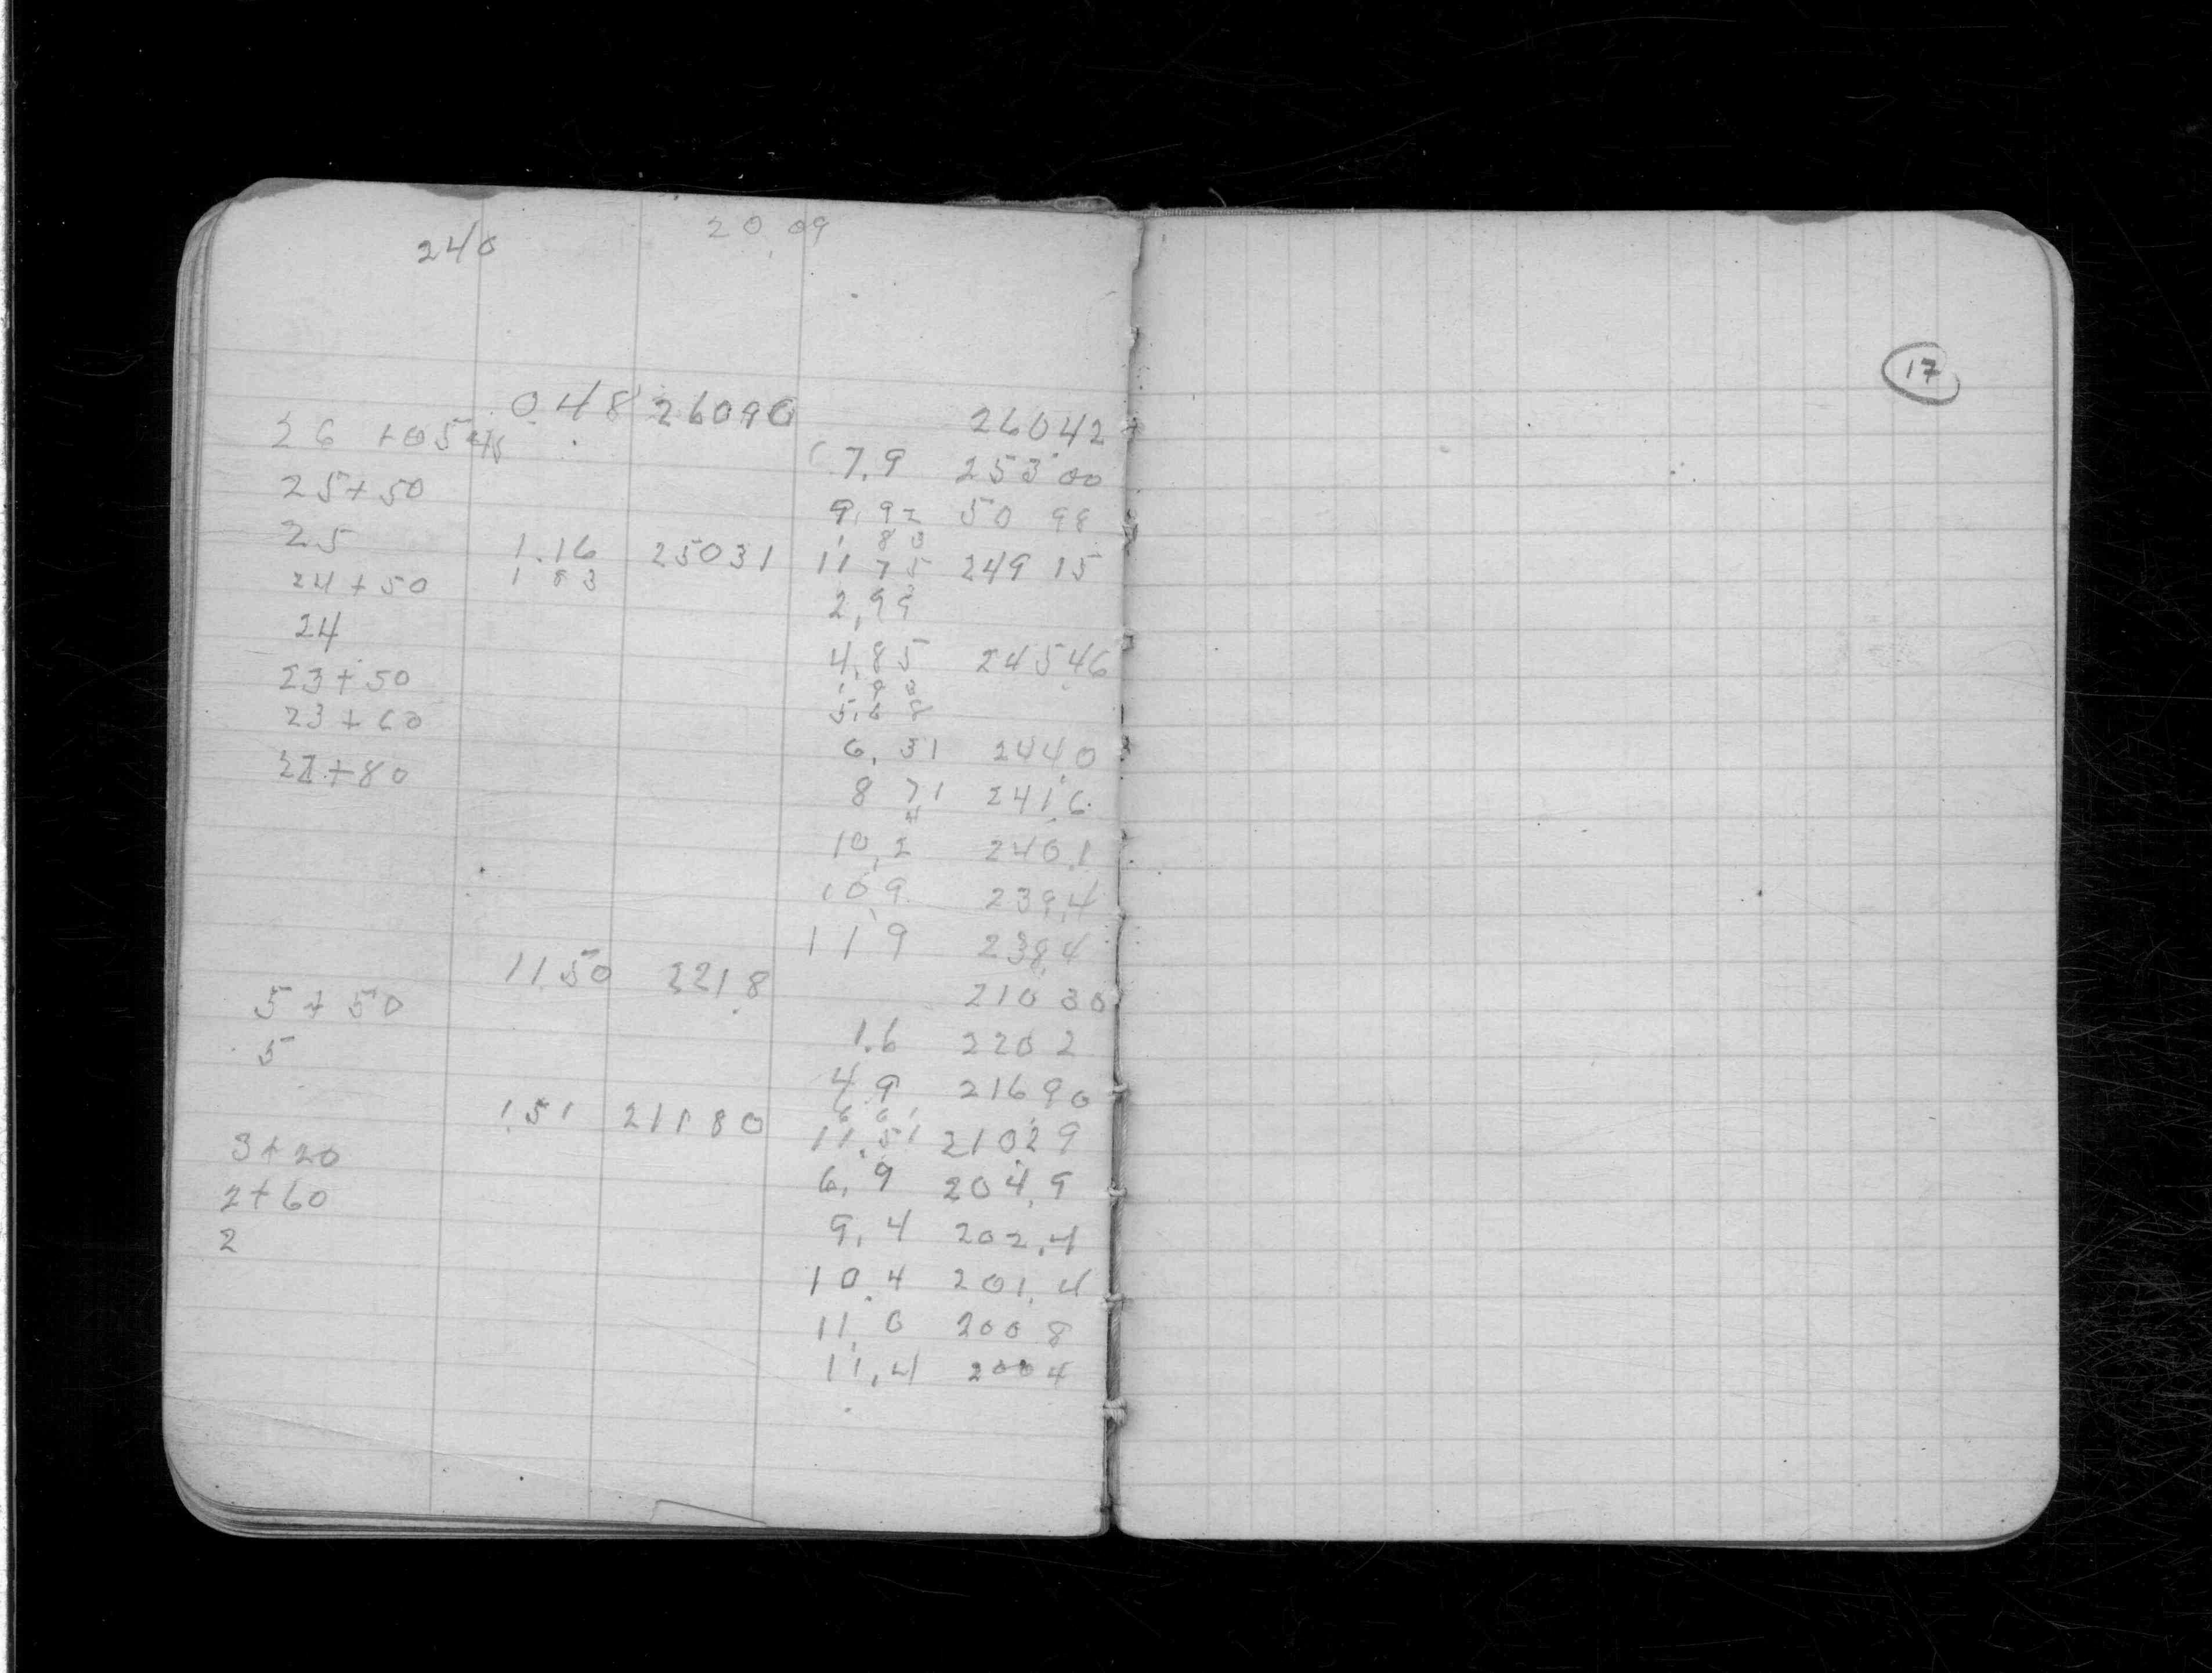 240 20.09
0.48 26090 26042
26 +05
7.9 253 00
25+50
9.92 50 98
25 1 83
1.16 25031 11 75 249 15
24+50 1 83
2,99
24
4.85 245 46
23+50 1 83
23+60 5.6 8
6,31 244.0
+80
8 71 241.6
10.2 240.1
10.9 239.4
11 9 238.4
11.50 221.8
5+50 210 30
1.6 220 2
5
4.9 216 90
6 61
1.51 211 80 11.51 210 29
3+20
6.9 204.9
2+60
9.4 202.4
2
10.4 201.4
11.0 200 8
11.4 200 4
17